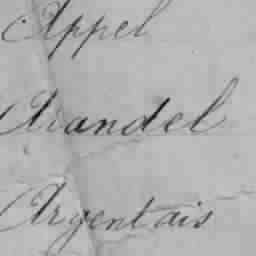 Appel
Arandel
Argentais